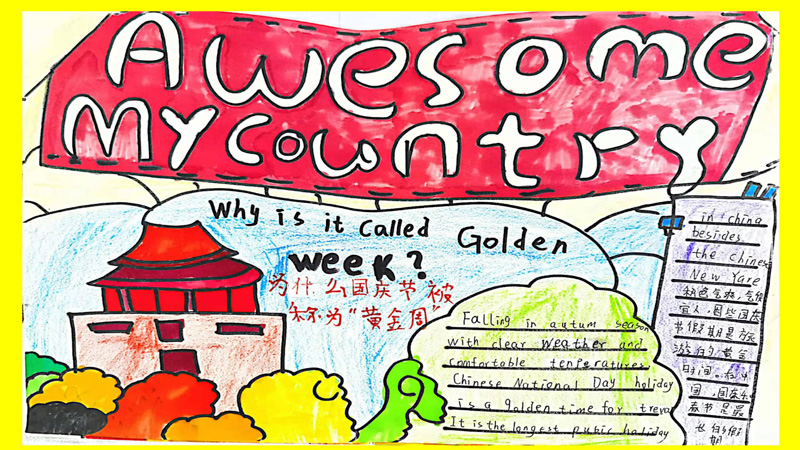 Awesome
My country
Why is it called Golden
week?
为什么国庆节被
称为"黄金周"
Falling in autum season
with clear weather and
comfortable tenieratures
Chinese National Day holiday
is a golden time for treva
It is the longest pubic holiday
in china
besides
the chinese
New Yare
秋色气爽,气候
宜人,因些国庆
节假期是旅
游的黄金
时间。在中
国,国庆和
春节是最
长的假
期